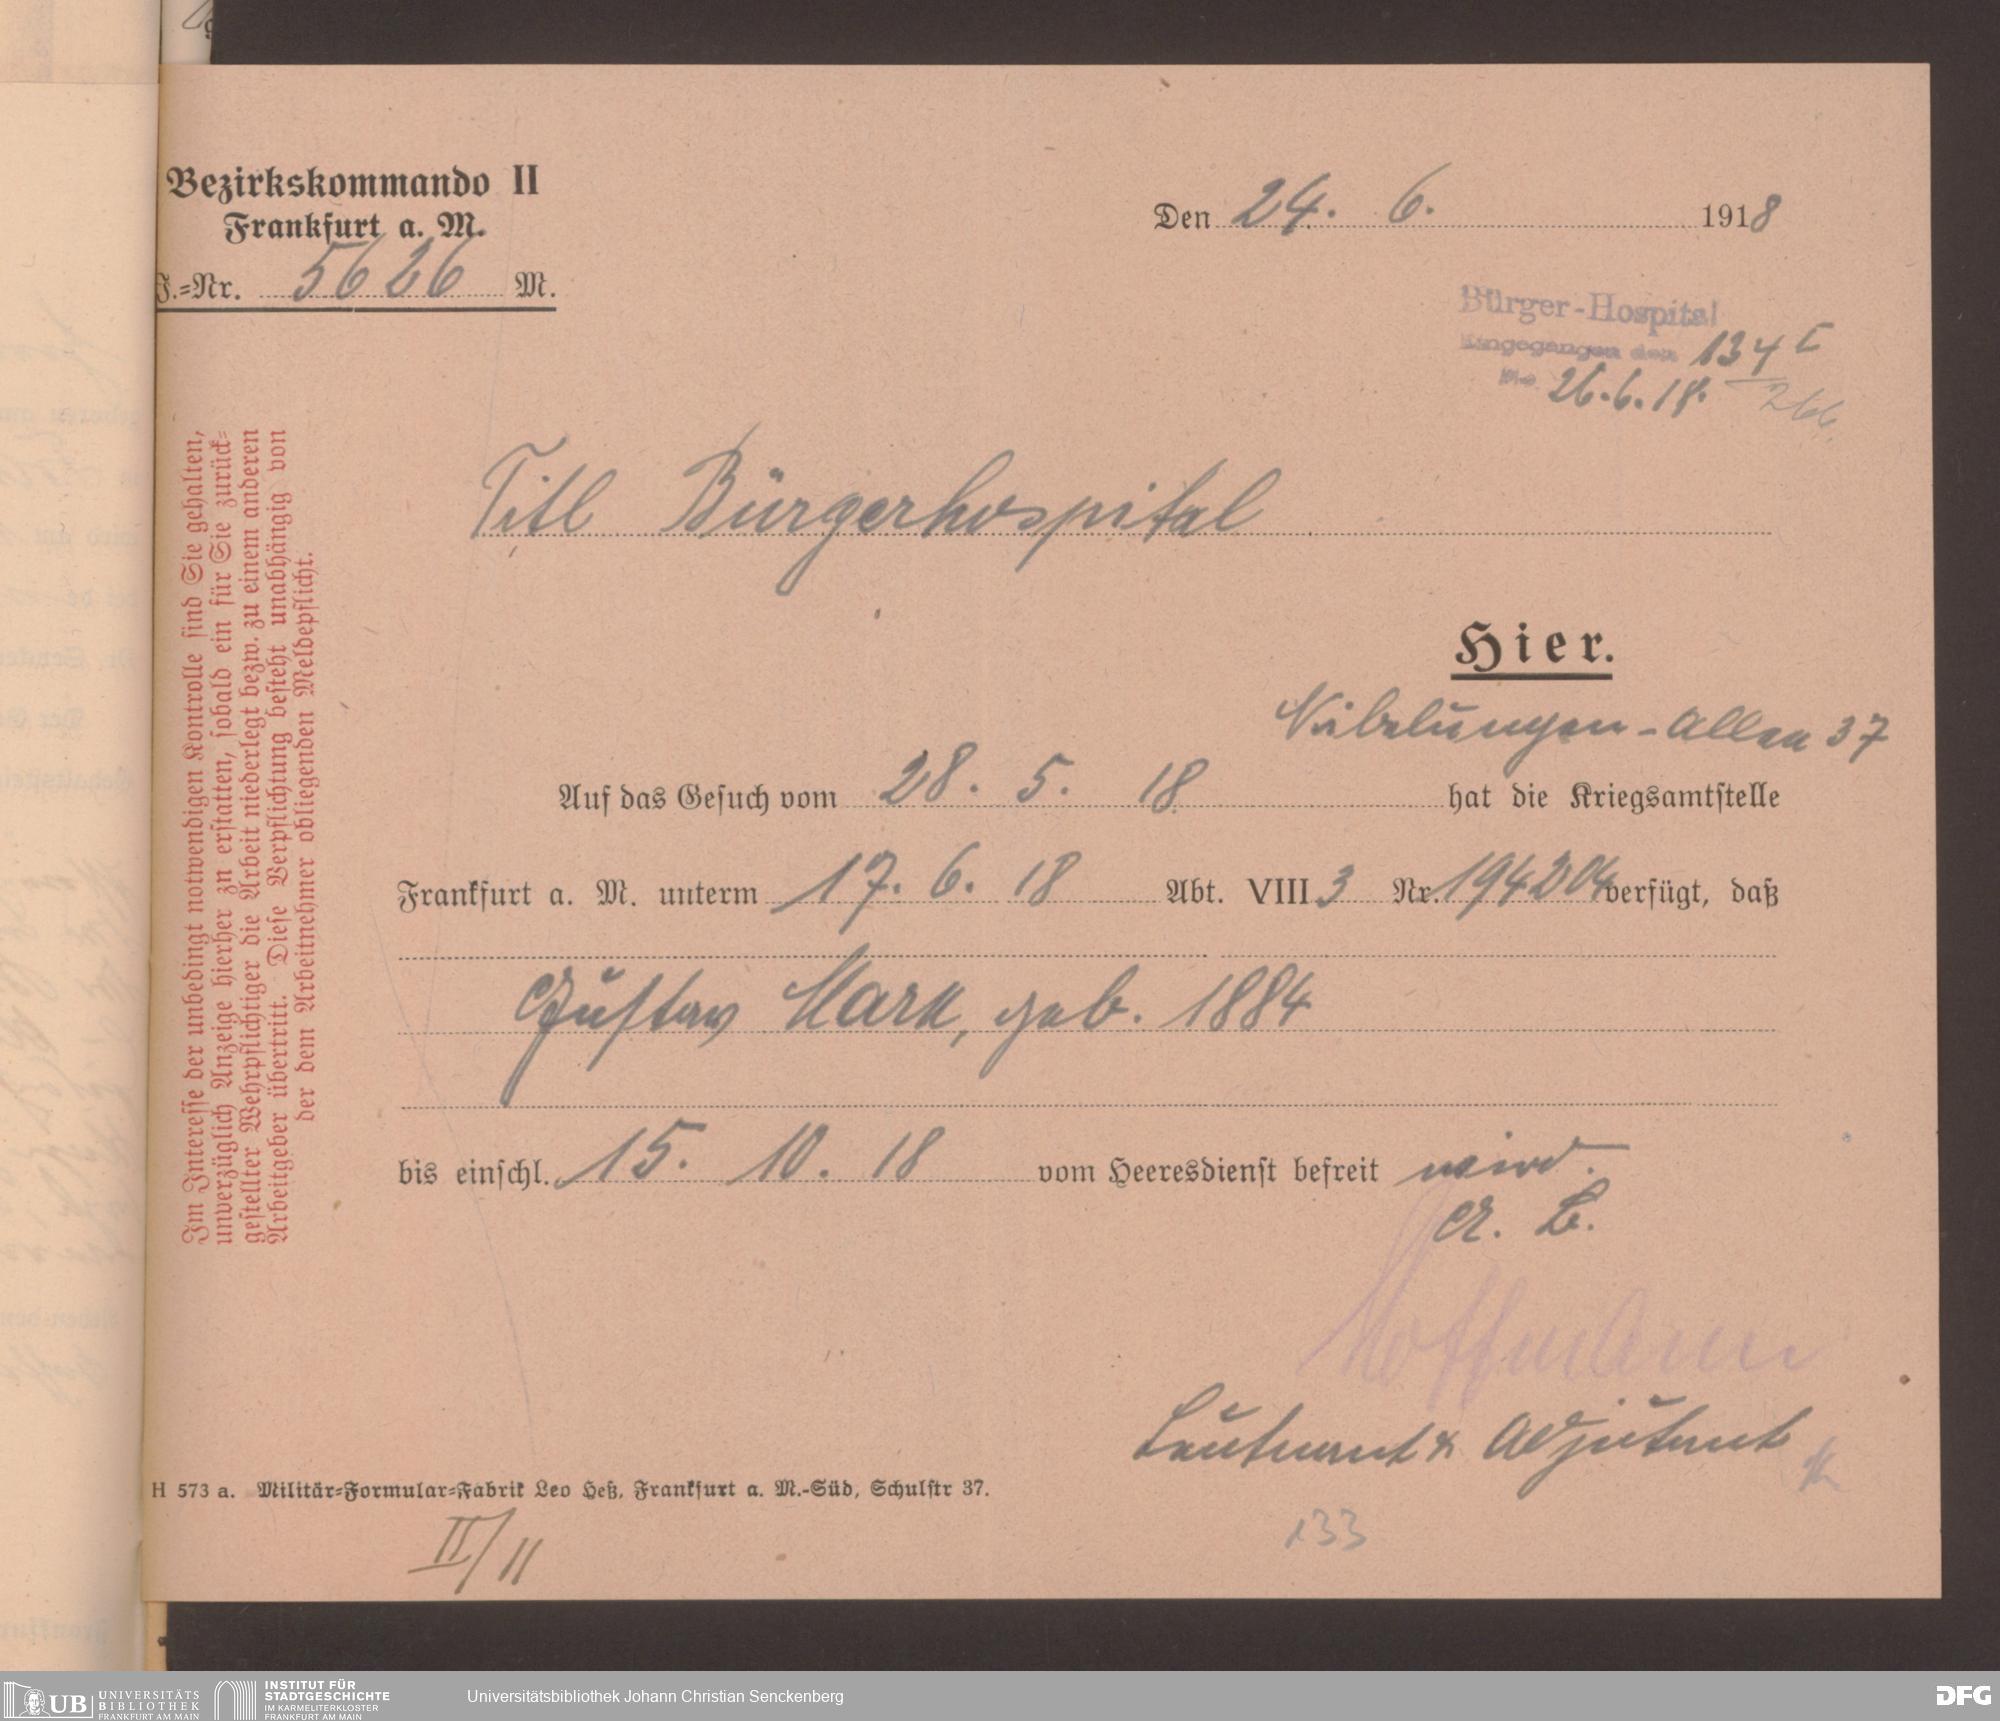 Bezirkskommando II
Frankfurt a. M.
J.=Nr. 5626 M.
Den 24. 6. 1918
Bürger-Hospital
Eingegangen den 134 I
No 26.6.18. 266.
Titl Bürgerhospital
Hier.
Nibelungen-Allee 37
Auf das Gesuch vom 28. 5. 18 hat die Kriegsamtstelle
Frankfurt a. M. unterm 17. 6. 18 Abt. VIII 3 Nr. 194204 verfügt, daß
Gustav Mark, geb. 1884
bis einschl. 15. 10. 18 vom Heeresdienst befreit wird.
A. B.
Hoffmann
Leutnant & Adjutant
Im Interesse der unbedingt notwendigen Kontrolle sind Sie gehalten,
unverzüglich Anzeige hierher zu erstatten, sobald ein für Sie zurück=
gestellter Wehrpflichtiger die Arbeit niederlegt bezw. zu einem anderen
Arbeitgeber übertritt. Diese Verpflichtung besteht unabhängig von
der dem Arbeitnehmer obliegenden Meldepflicht.
H 573 a. Militär=Formular=Fabrik Leo Heß, Frankfurt a. M.-Süd, Schulstr 37.
II/11
133
UB UNIVERSITÄTS
BIBLIOTHEK
FRANKFURT AM MAIN
INSTITUT FÜR
STADTGESCHICHTE
IM KARMELITERKLOSTER
FRANKFURT AM MAIN
Universitätsbibliothek Johann Christian Senckenberg
DFG